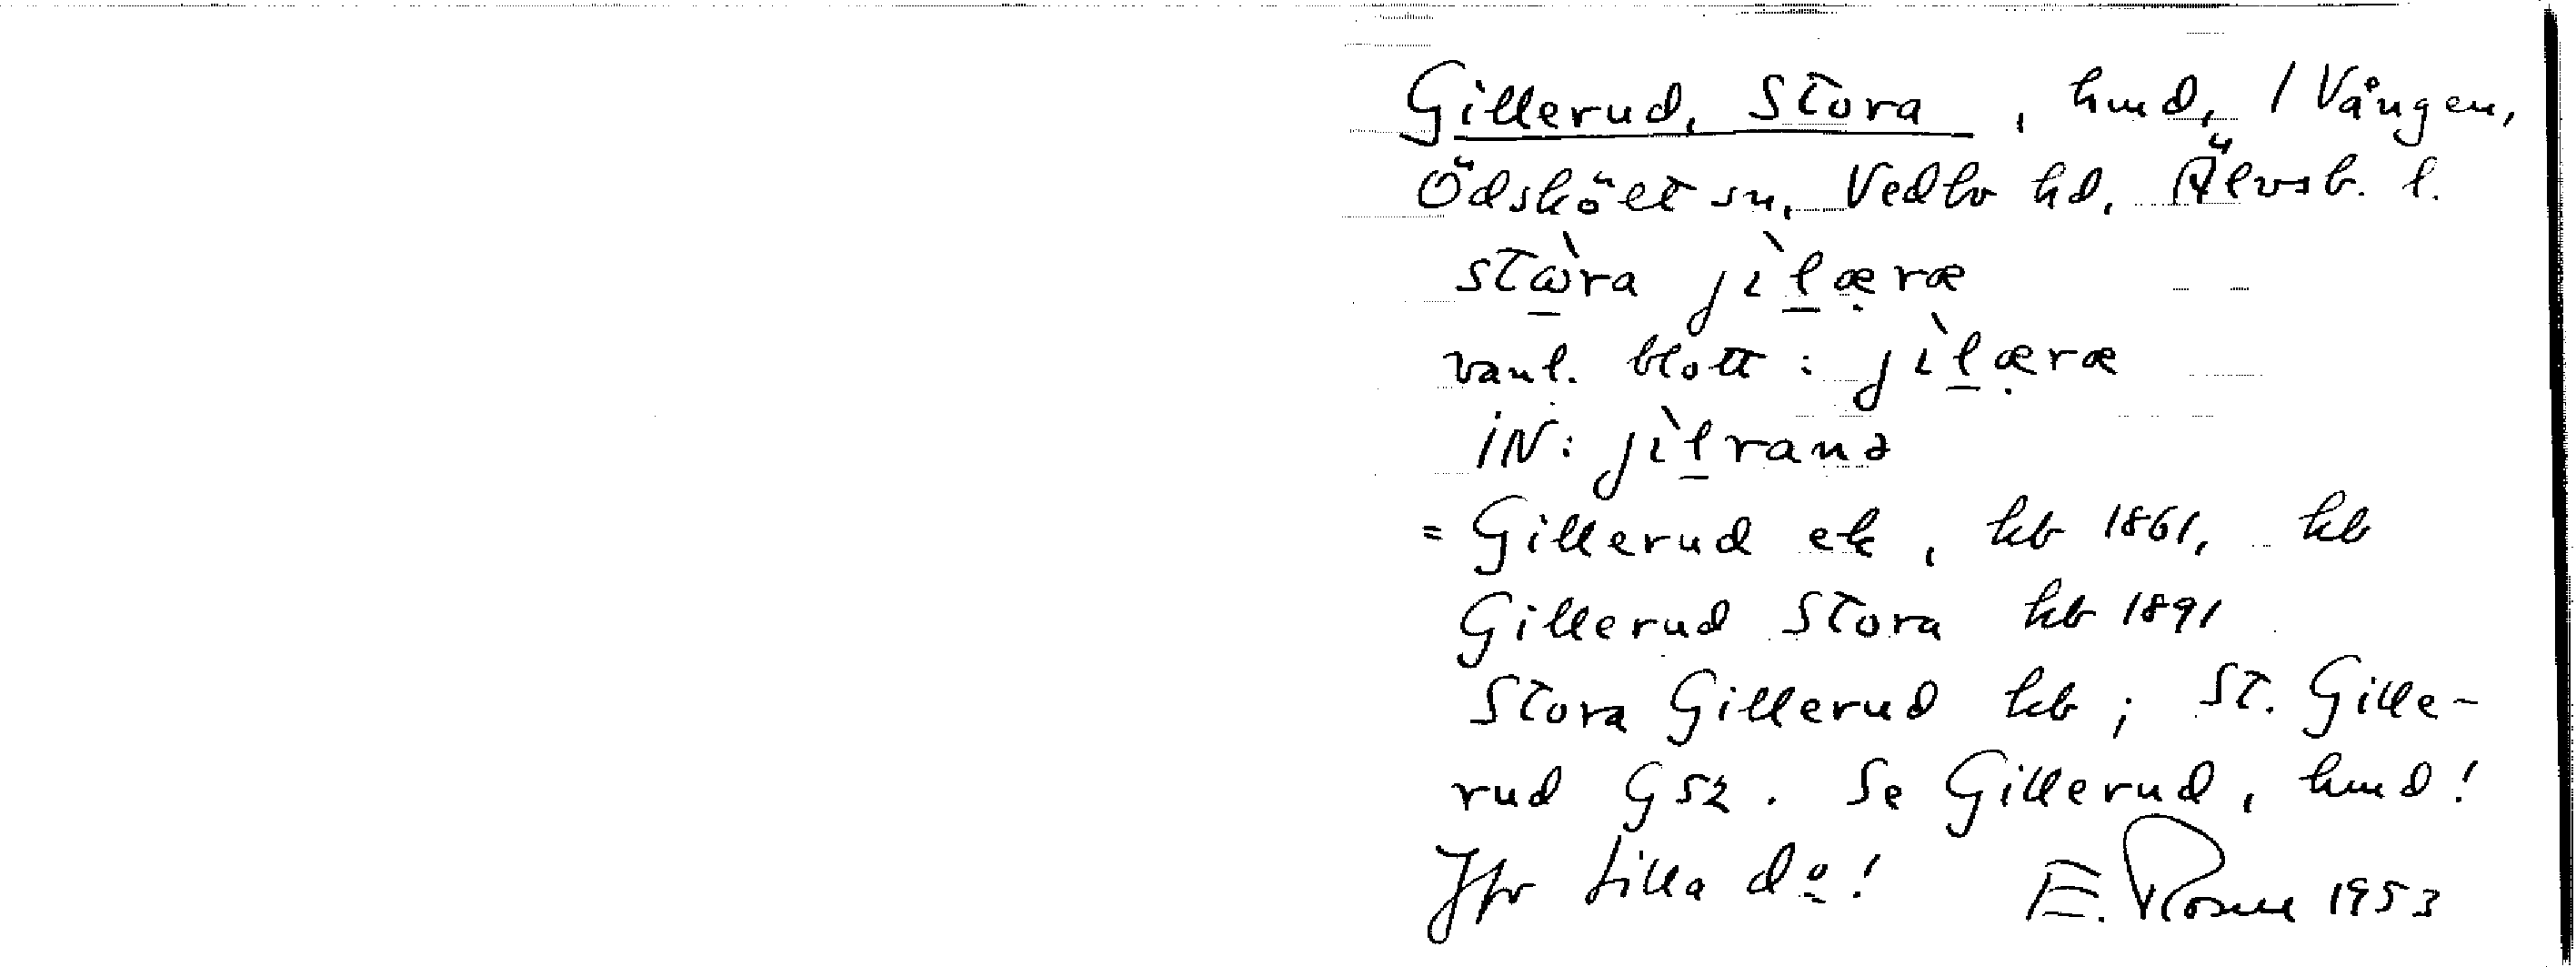 Gillerud, Stora, hmd, / Vången,
Ödskölt sn, Vedbo hd, Älvsb. l.
stὼra jìlæræ
vanl. blott: jìlæræ
iN: jìlranə
= Gillerud ek, kb 1861, kb
Gillerud Stora kb 1891
Stora Gillerud kb; St. Gille-
rud G52. Se Gillerud, hmd!
Jfr Lilla do!
E. 1953